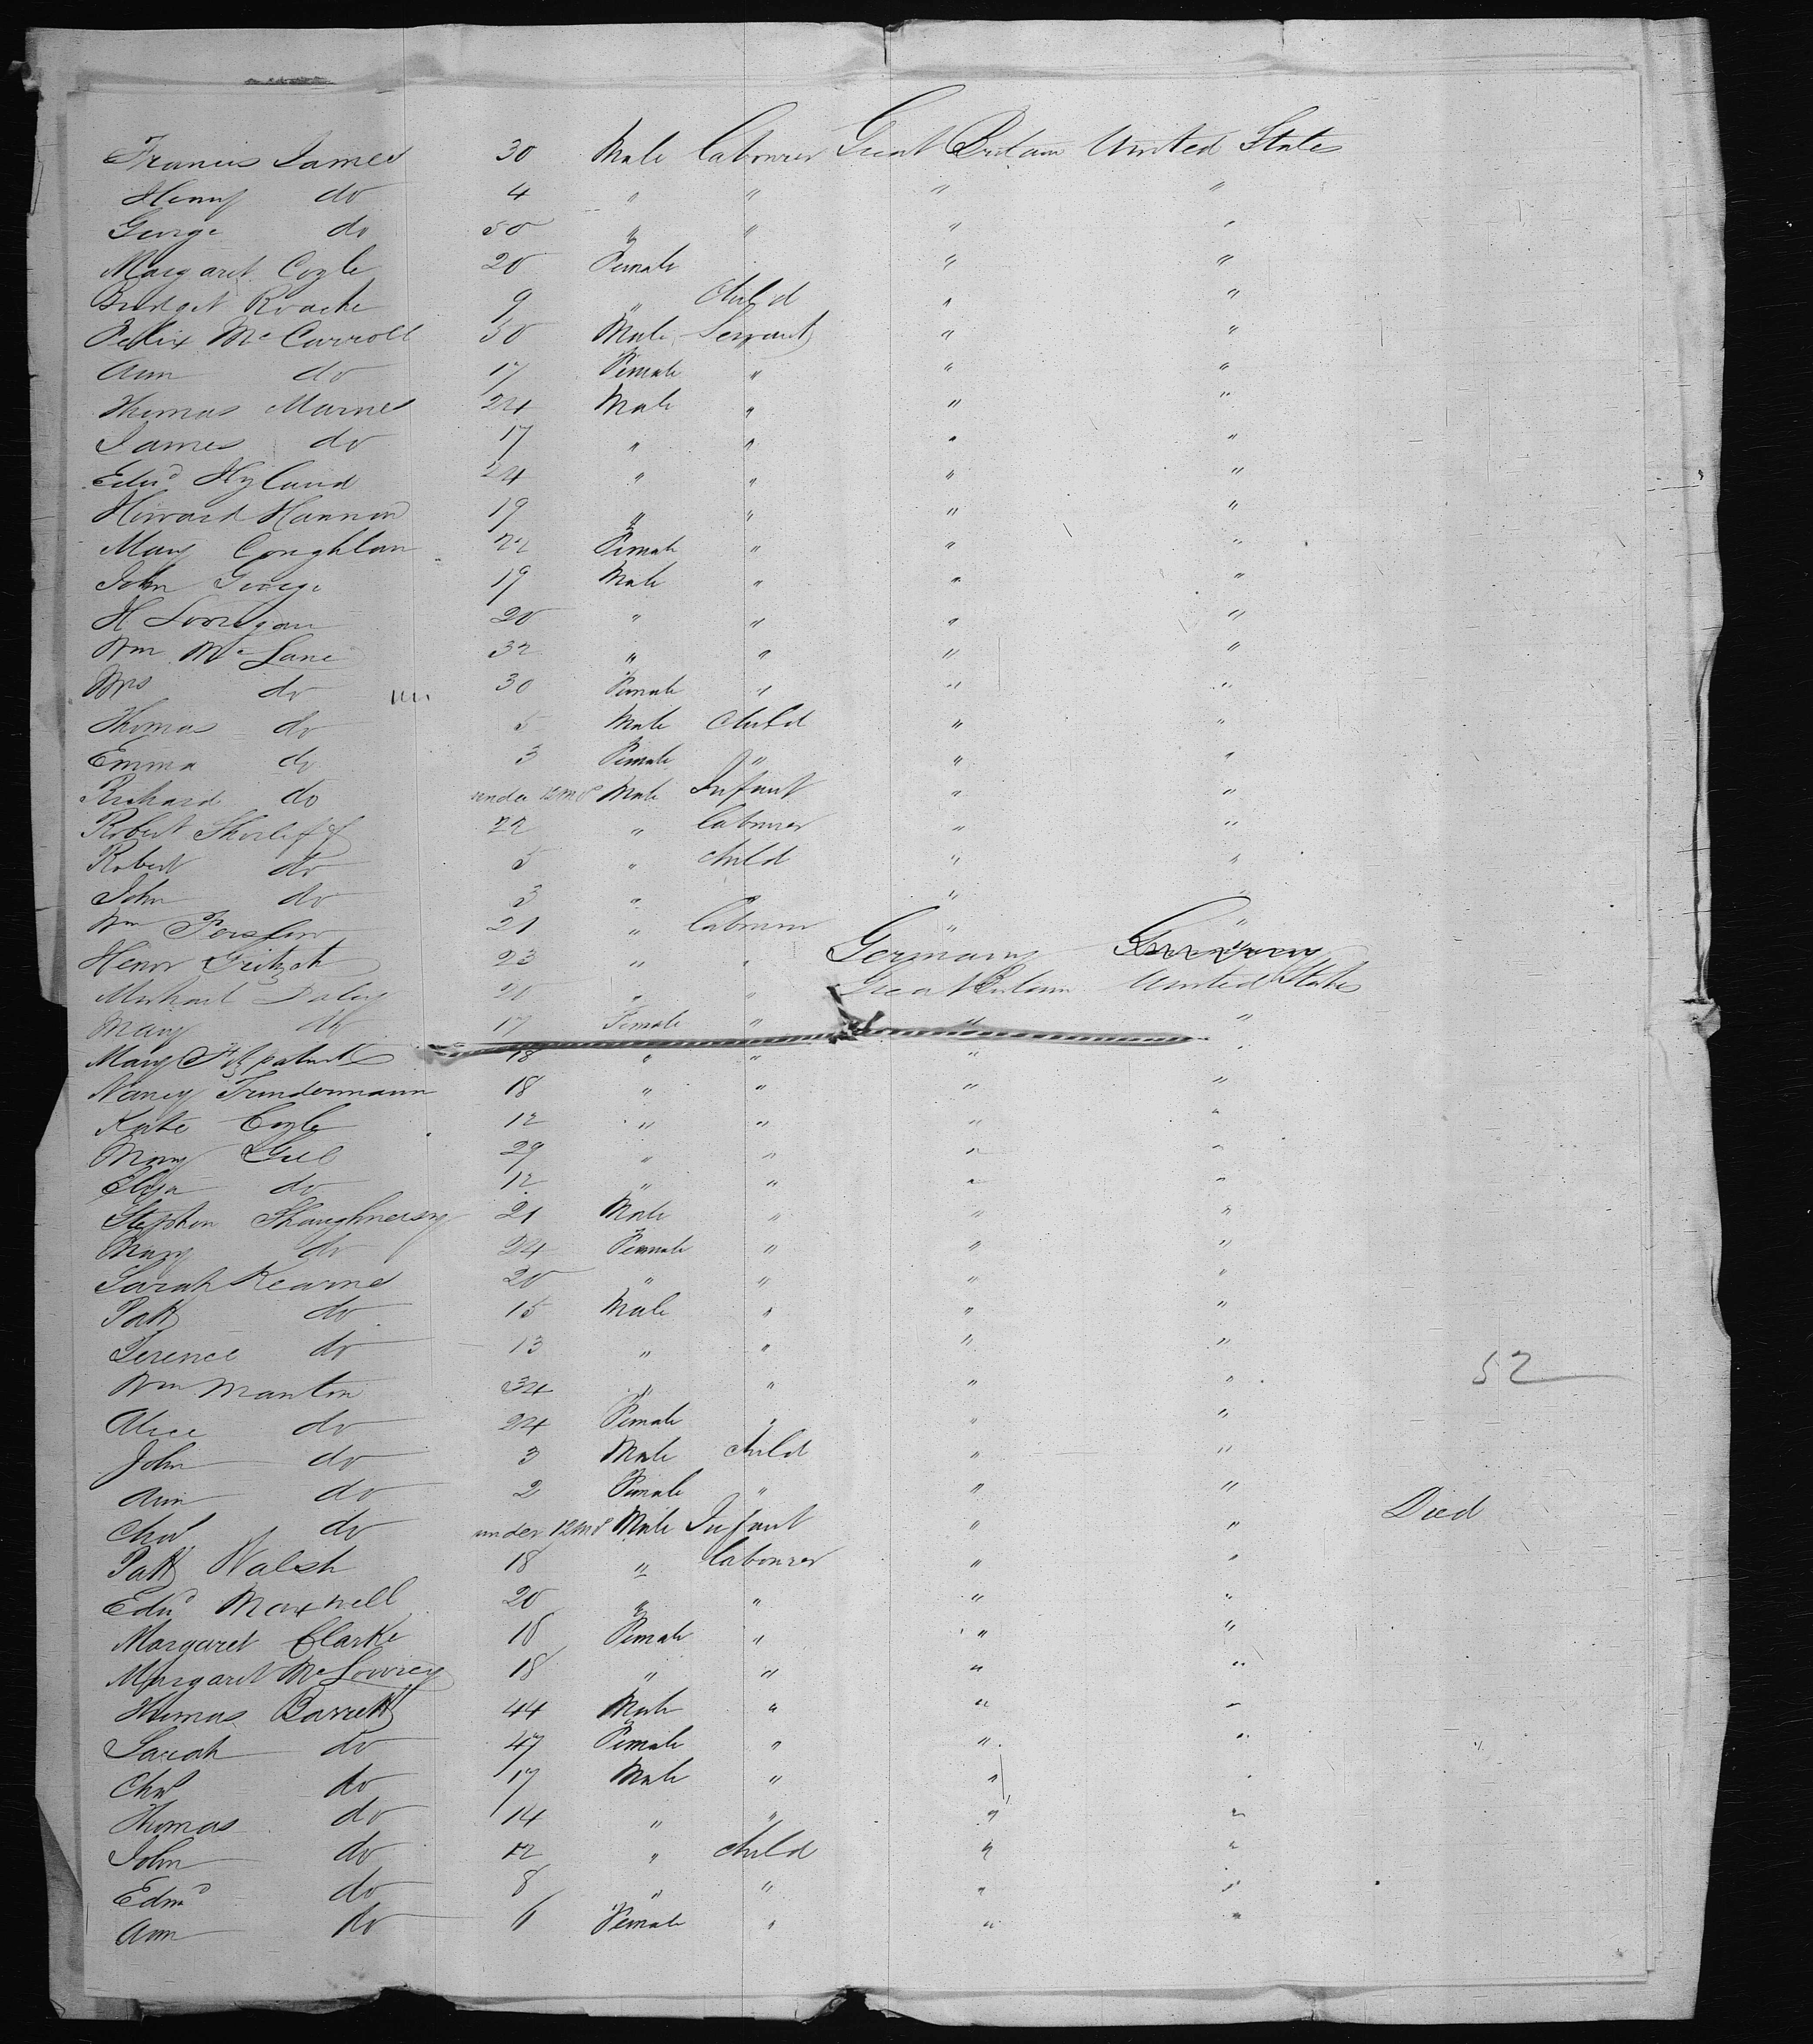 Francis James 30 Male Labourer Great Britain United States
Henry do 4 " " " "
George do 50 " " " "
Margaret Coyle 20 Female " "
Bridget Roache 9 " Child " "
Felix McCarroll 30 Male Servant " "
Ann do 17 Female " " "
Thomas Marnes 24 Male " " "
James do 17 " " " "
Edwd Hyland 24 " " " "
Howard Hannon 19 " " " "
Mary Coughlan 22 Female " " "
John George 19 Male " " "
H 20 " " " "
Wm McLane 32 " " " "
Mrs do 30 Female " " "
Thomas do 5 Male Child " "
Emma do 3 Female " " "
Richard do under 12 ms Male Infant " "
Robert 22 " Labourer " "
Robert do 5 " Child " "
John do 3 " " " "
Wm 21 " Labourer " "
23 " " Germany
Michael Daley 20 " " Great Britain United States
Mary do 17 Female " " "
Mary Fitzpatrick 18 " " " "
Nancy 18 " " " "
Kate Coyle 12 " " " "
Mary Gill 29 " " " "
Eliza do 12 " " " "
Stephen Shaughnessy 21 Male " " "
Mary do 24 Female " " "
Sarah Kearns 20 " " " "
Patk do 15 Male " " "
Terence do 13 " " " "
Wm Manton 34 " " " " 52
Alice do 24 Female " " "
John do 3 Male Child " "
Ann do 2 Female " " "
Chas do under 12 ms Male Infant " " Died
Patk Walsh 18 " Labourer " "
Edwd Maxwell 20 " " " "
Margaret Clarke 18 Female " " "
Margaret McLowrey 18 " " " "
Thomas Barrett 44 Male " " "
Sarah do 47 Female " " "
Chas do 17 Male " " "
Thomas do 14 " " " "
John do 12 " Child " "
Edmd do 8 " " " "
Ann do 6 Female " " "